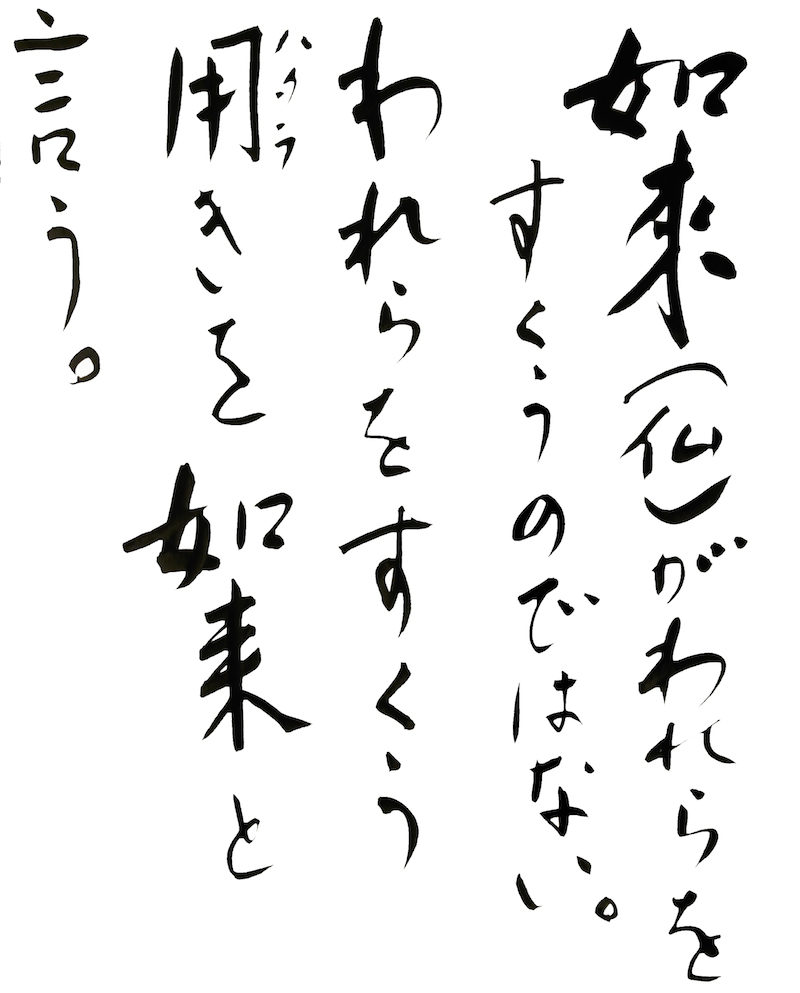 如来（仏）がわれらを
すくうのではない。
われらをすくう
用きを如来と
ハタラ
言う。